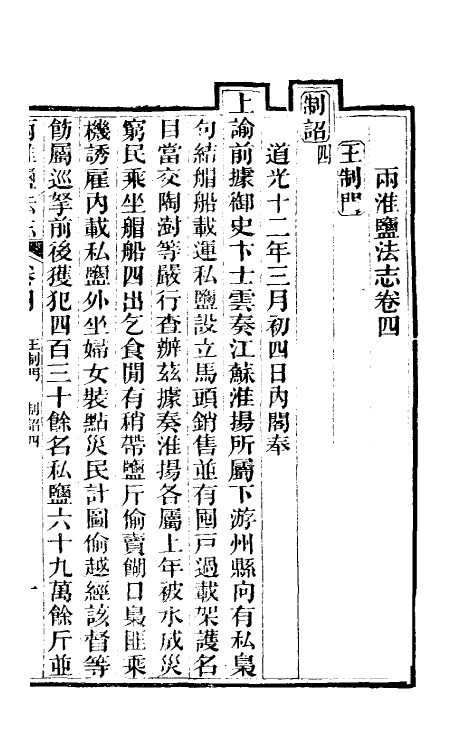 兩淮鹽法志卷四
王制門
制詔四
道光十二年三月初四日內閣奉
上諭前據御史卞士雲奏江蘇淮揚所屬下游州縣向有私梟
句結艒船載運私鹽設立馬頭銷售並有囤戸過載架護名
目當交陶澍等嚴行查辦茲據奏淮揚各屬上年被水成災
窮民乘坐艒船四出乞食閒有稍帶鹽斤偷賣餬口梟匪乘
機誘雇內載私鹽外坐婦女裝點災民計圖偷越經該督等
飭屬巡拏前後獲犯四百三十餘名私鹽六十九萬餘斤並
兩淮鹽法志 卷四 王制門 制詔四 一